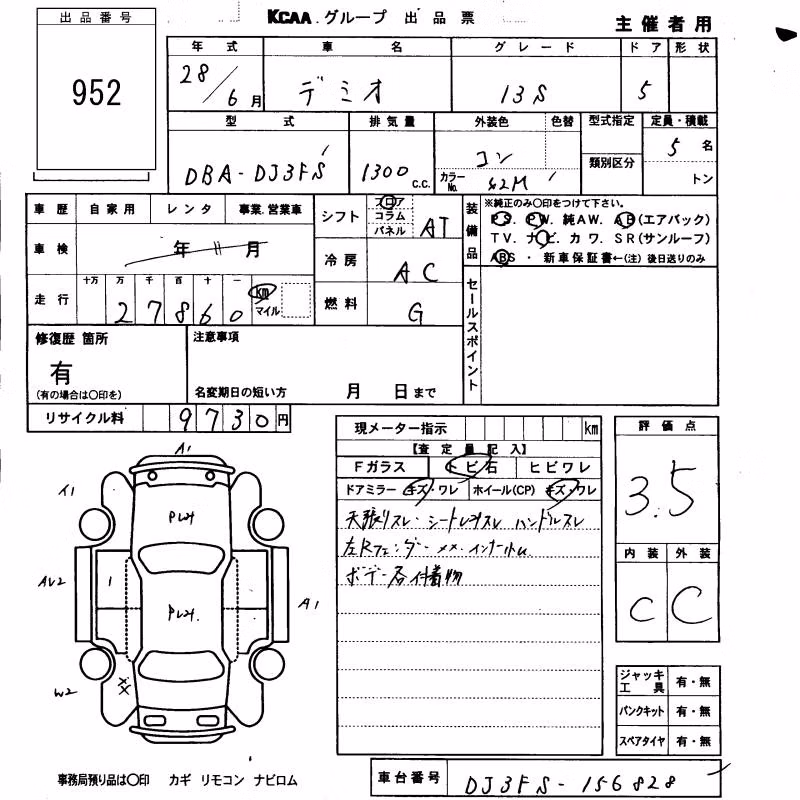 出品番号
952
KCAA.グループ 出品票
主催者用
年式 車名 グレード ドア 形状
28/6月 デミオ 13S 5
型式 排気量 外装色 色替 型式指定 定員・積載
DBA-DJ3FS 1300 c.c. コン 類別区分 5名
カラーNo. 42M トン
車歴 自家用 レンタ 事業.営業車
車検 年 11 月
走行 十万 万 千 百 十 一
27860 km マイル
シフト フロア コラム パネル AT
冷房 AC
燃料 G
装備品
※純正のみ○印をつけて下さい。
PS. PW. 純AW. AB(エアバック)
TV. ナビ. カワ. SR(サンルーフ)
ABS ・ 新車保証書←(注)後日送りのみ
セールスポイント
修復歴 箇所
有
(有の場合は○印を)
注意事項
名変期日の短い方 月 日まで
リサイクル料 9730円
現メーター指示 km
【査定量記入】
Fガラス トビ石 ヒビワレ
ドアミラー キズ・ワレ ホイール(CP) キズ・ワレ
天張リスレ・シートレスレ ハンドルスレ
左Rフェンダー
ボデー各付着物
評価点
3.5
内装 外装
C C
A1
A1
ジャッキ工具 有・無
パンクキット 有・無
スペアタイヤ 有・無
W2
事務局預り品は○印 カギ リモコン ナビロム
車台番号 DJ3FS-156828